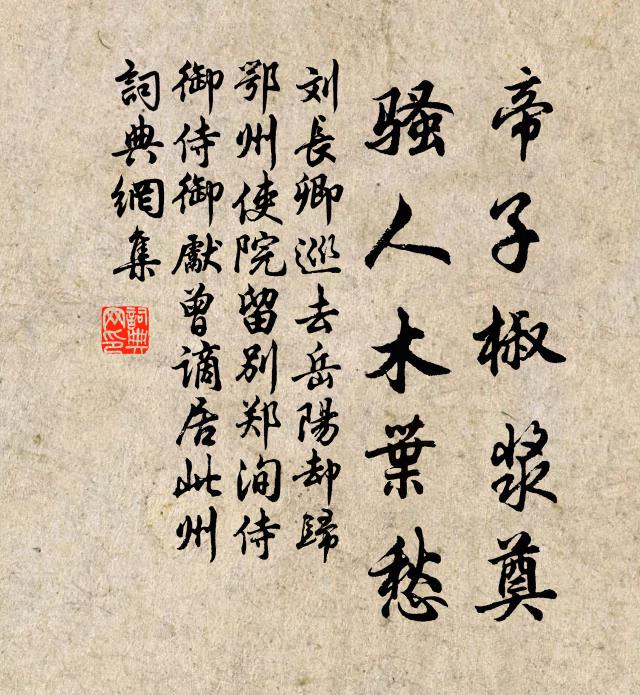 帝子椒浆奠
骚人木葉愁
刘長卿巡去岳陽却歸
鄂州使院留别郑洵侍
御侍御獻曾谪居此州
詞典網集
詞典
网印